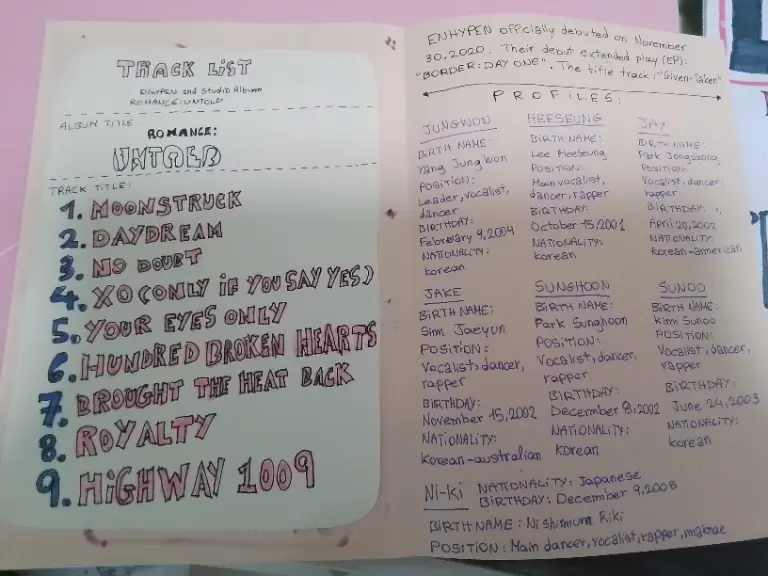 TRACK LIST
ENHYPEN 2nd Studio Album
ROMANCE:UNTOLD
ALBUM TITLE:
ROMANCE:
UNTOLD
TRACK TITLE:
1. MOONSTRUCK
2. DAYDREAM
3. NO DOUBT
4. XO (ONLY iF YOU SAY YES)
5. YOUR EYES ONLY
6. HUNDRED BROKEN HEARTS
7. BROUGHT THE HEAT BACK
8. ROYALTY
9. HiGHWAY 1009
ENHYPEN officially debuted on November
30,2020. Their debut extended play (EP):
"BORDER: DAY ONE". The title track: "Given-Taken"
PROFiLES:
JUNGWON
BiRTH NAME:
Yang Jungwon
POSiTiON:
Leader, vocalist,
dancer
BiRTHDAY:
February 9,2004
NATiONALiTY:
korean
HEESEUNG
BiRTH NAME:
Lee Heeseung
POSiTiON:
Main vocalist,
dancer, rapper
BiRTHDAY:
October 15,2001
NATiONALiTY:
korean
JAY
BiRTH NAME:
Park Jongseong
POSiTiON:
Vocalist, dancer,
rapper
BiRTHDAY:
April 20,2002
NATiONALiTY:
korean-american
JAKE
BiRTH NAME:
Sim Jaeyun
POSiTiON:
Vocalist, dancer,
rapper
BiRTHDAY:
November 15,2002
NATiONALiTY:
Korean-australian
SUNGHOON
BiRTH NAME:
Park Sunghoon
POSiTiON:
Vocalist, dancer,
rapper
BiRTHDAY:
December 8,2002
NATiONALiTY:
Korean
SUNOO
BiRTH NAME:
Kim Sunoo
POSiTiON:
Vocalist, dancer,
rapper
BiRTHDAY:
June 24,2003
NATiONALiTY:
korean
Ni-ki
NATiONALiTY: Japanese
BiRTHDAY: December 9,2005
BiRTH NAME: Nishimura Riki
POSiTiON: Main dancer, vocalist, rapper, maknae